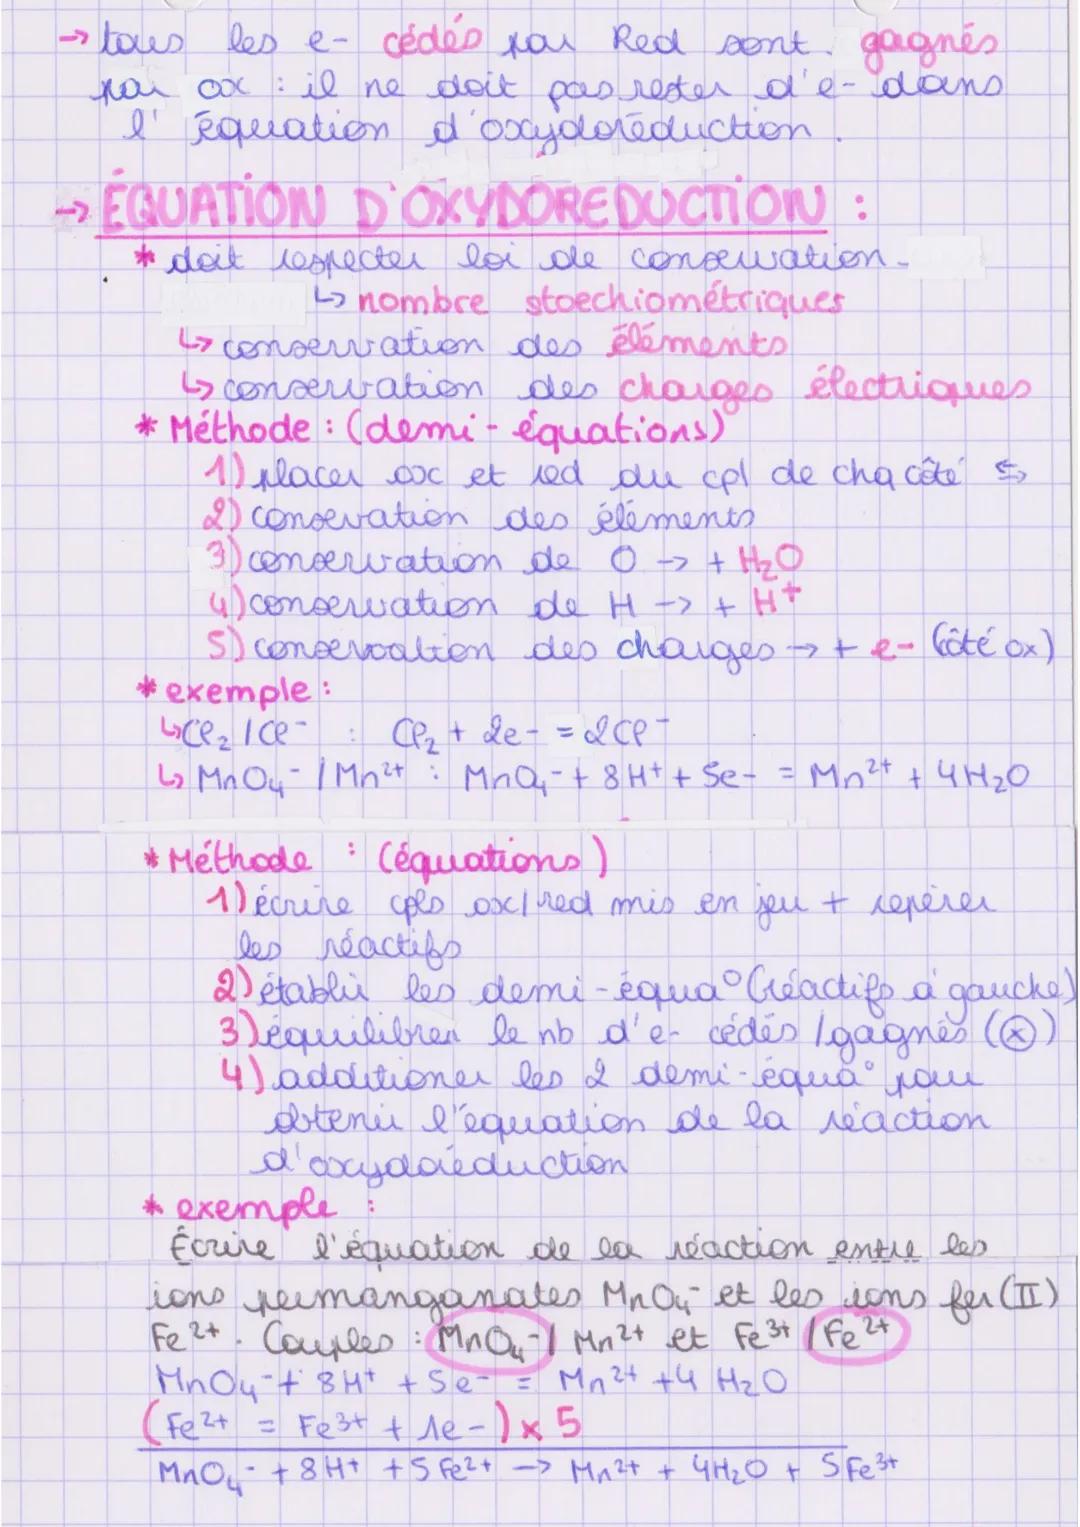 → tous les e- cédés par Red sont gagnés
par ox : il ne doit pas rester d'e- dans
l'équation d'oxydoréduction.
→ ÉQUATION D'OXYDOREDUCTION :
* doit respecter loi de conservation.
↳ nombre stoechiométriques
↳ conservation des éléments
↳ conservation des charges électriques
* Méthode : (demi-équations)
1) placer ox et red du cpl de cha côté ⇆
2) conservation des éléments
3) conservation de O → + H₂O
4) conservation de H → + H⁺
5) conservation des charges → + e- (côté ox)
* exemple :
↳ Cl₂ / Cl⁻ : Cl₂ + 2e- = 2Cl⁻
↳ MnO₄⁻ / Mn²⁺ : MnO₄⁻ + 8H⁺ + 5e- = Mn²⁺ + 4H₂O
* Méthode : (équations)
1) écrire cpls ox/red mis en jeu + repérer
les réactifs
2) établir les demi-équa° (réactifs à gauche)
3) équilibrer le nb d'e- cédés / gagnés (⊗)
4) additioner les 2 demi-équa° pour
obtenir l'équation de la réaction
d'oxydoréduction
* exemple :
Écrire l'équation de la réaction entre les
ions permanganates MnO₄⁻ et les ions fer (II)
Fe²⁺. Couples : MnO₄⁻ / Mn²⁺ et Fe³⁺ / Fe²⁺
MnO₄⁻ + 8H⁺ + 5e⁻ = Mn²⁺ + 4 H₂O
(Fe²⁺ = Fe³⁺ + 1e-) x 5
MnO₄⁻ + 8H⁺ + 5Fe²⁺ → Mn²⁺ + 4H₂O + 5Fe³⁺